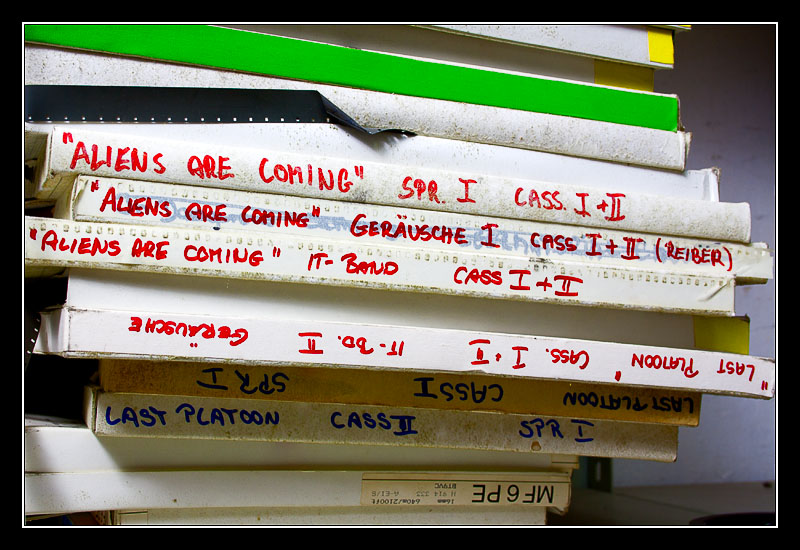 "ALIENS ARE COMING" SPR. I CASS. I + II
"ALIENS ARE COMING" GERÄUSCHE I CASS I + II (REIBER)
"ALIENS ARE COMING" IT-BAND CASS I + II
"LAST PLATOON" CASS. I + II IT-BD. II GERÄUSCHE
LAST PLATOON CASS I SPR I
LAST PLATOON CASS II SPR I
MF6PE
16mm 640m/2100ft